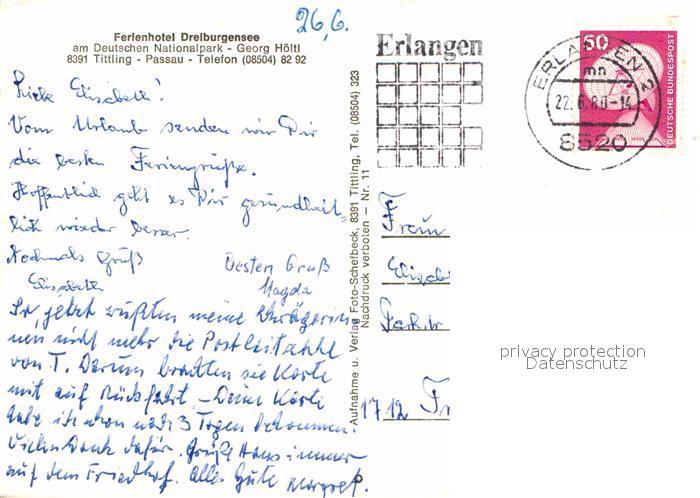 26.6.
Ferienhotel Dreiburgensee
am Deutschen Nationalpark - Georg Höltl
8391 Tittling - Passau - Telefon (08504) 82 92
Liebe Elisabeth!
Vom Urlaub senden wir Dir
die besten Feriengrüße.
Hoffentlich geht es Dir gesundheit-
lich wieder besser.
Nochmals Gruß
Elisabeth
Besten Gruß
Magda
So, jetzt wußten meine Schwägerin
nen nicht mehr die Postleitzahl
von T. Darum brachten sie Karte
mit auf Rückfahrt. – Deine Karte
habe ich schon nach 3 Tagen bekommen.
Vielen Dank dafür. Grüße Hans immer
auf dem Friedhof. Alles Gute Margret.
Aufnahme u. Verlag Foto-Schefbeck, 8391 Tittling, Tel. (08504) 323
Nachdruck verboten – Nr. 11
Erlangen
ERLANGEN 2
mn
22.6.80-14
8520
50
DEUTSCHE BUNDESPOST
Frau
Elisab
Parkstr
1712
privacy protection
Datenschutz